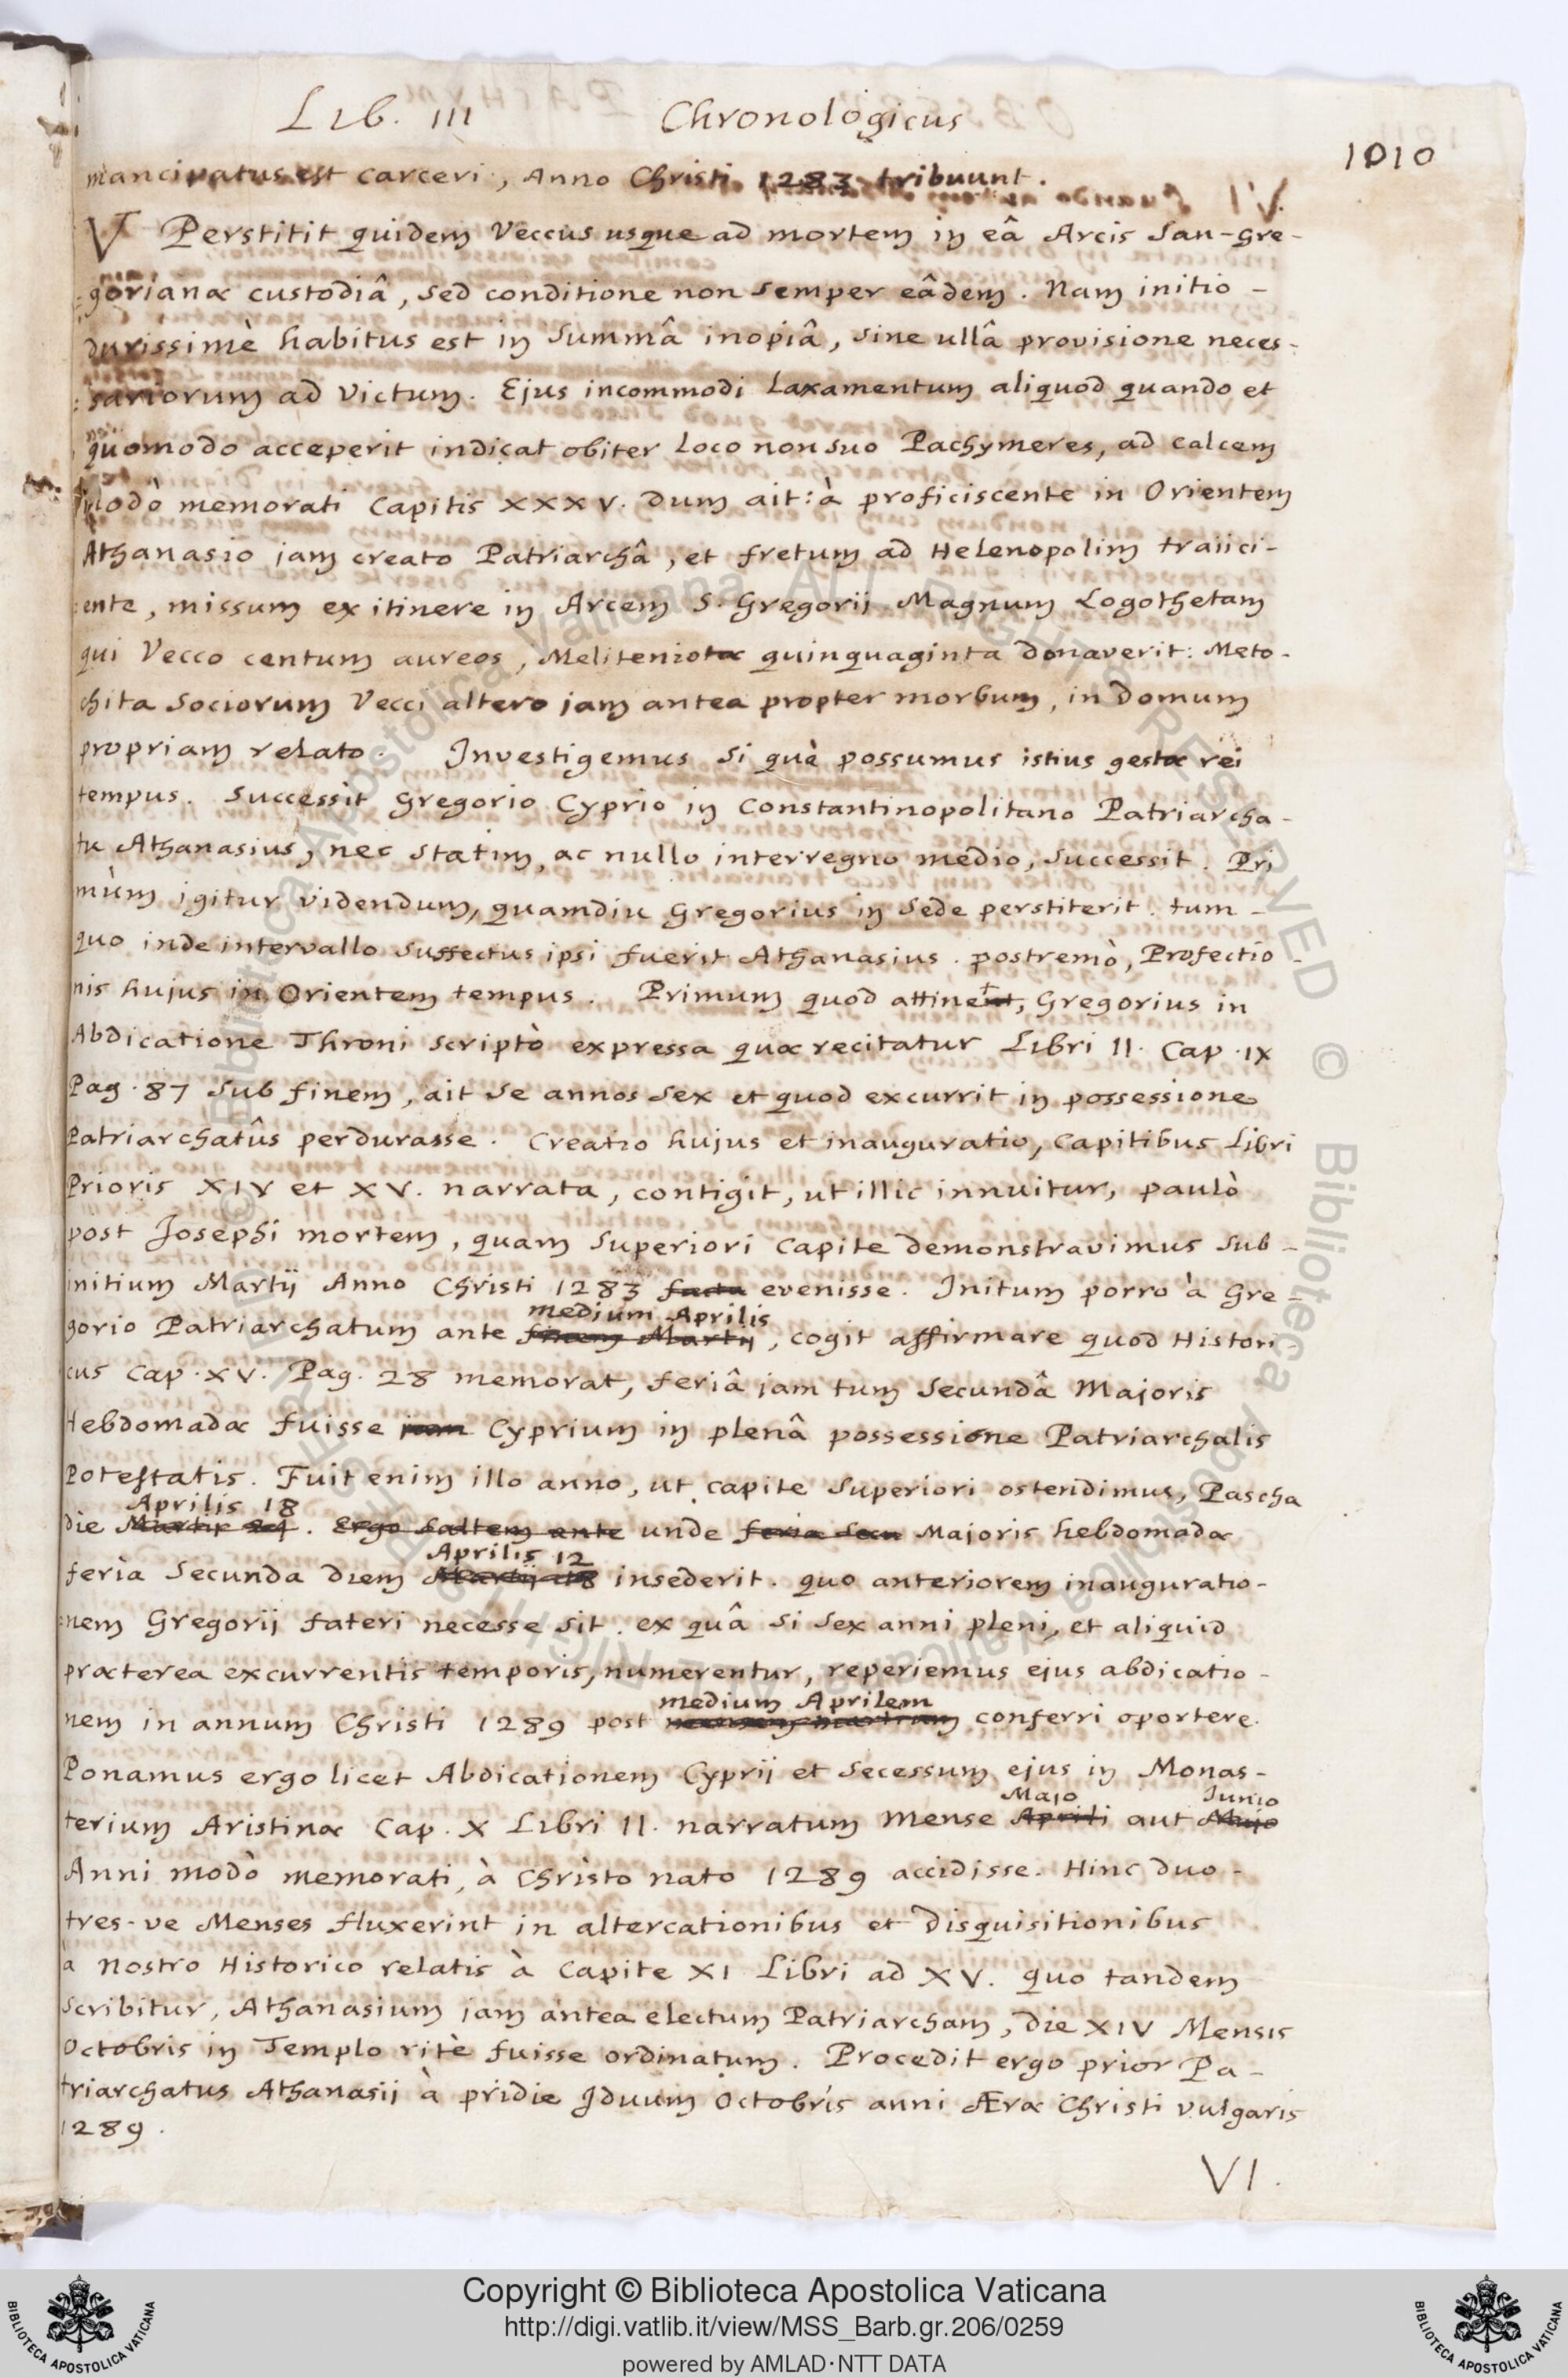 Lib. III Chronologicus
1010
mancipatus est carceri, Anno Christi 1283 tribuunt.
V Perstitit quidem Veccus usque ad mortem in eâ Arcis San-Gre-
gorianæ custodiâ, sed conditione non semper eâdem. Nam initio -
durissimè habitus est in summâ inopiâ, sine ullâ provisione neces-
:sariorum ad victum. Ejus incommodi laxamentum aliquod quando et
quomodo acceperit indicat obiter loco non suo Pachymeres, ad calcem
modò memorati Capitis XXXV. dum ait: à proficiscente in Orientem
Athanasio jam creato Patriarchâ, et fretum ad Helenopolim traiici-
:ente, missum ex itinere in Arcem S. Gregorij Magnum Logothetam
qui Vecco centum aureos, Meliteniotæ quinquaginta donaverit: Meto-
chita sociorum Vecci altero jam antea propter morbum, in domum
propriam relato. Investigemus si què possumus istius gestæ rei
tempus. Successit Gregorio Cyprio in Constantinopolitano Patriarcha-
tu Athanasius, nec statim, ac nullo interregno medio, successit. Pri
mùm igitur videndum, quamdiu Gregorius in sede perstiterit. tum -
quo inde intervallo suffectus ipsi fuerit Athanasius. postremò, Profectio-
nis hujus in Orientem tempus. Primum quod attinet, Gregorius in
Abdicatione Throni scriptò expressa quæ recitatur Libri II. Cap. IX
Pag. 87 sub finem, ait se annos sex et quod excurrit in possessione
Patriarchatûs perdurasse. Creatio hujus et inauguratio, capitibus Libri
Prioris XIV et XV. narrata, contigit, ut illic innuitur, paulò
post Josephi mortem, quam superiori capite demonstravimus sub -
initium Martij Anno Christi 1283 facta evenisse. Initum porro à Gre-
medium Aprilis
gorio Patriarchatum ante finem Martij, cogit affirmare quod Histori-
cus Cap. XV. Pag. 28 memorat, feriâ jam tum secundâ Majoris
Hebdomadæ fuisse jam Cyprium in plenâ possessione Patriarchalis
Potestatis. Fuit enim illo anno, ut capite superiori ostendimus, Pascha
Aprilis 18
die . Ergo saltem ante unde feria secu Majoris hebdomadæ
Aprilis 12
feria secunda diem Martij 18 insederit. quo anteriorem inauguratio-
:nem Gregorij fateri necesse sit. ex quâ si sex anni pleni, et aliquid
præterea excurrentis temporis, numerentur, reperiemus ejus abdicatio-
medium Aprilem
nem in annum Christi 1289 post conferri oportere.
Ponamus ergo licet Abdicationem Cyprij et secessum ejus in Monas-
Majo Junio
terium Aristinæ Cap. X Libri II. narratum Mense Aprili aut Majo
Anni modò memorati, à Christo nato 1289 accidisse. Hinc duo-
tres-ve Menses fluxerint in altercationibus et disquisitionibus
à nostro Historico relatis à Capite XI Libri ad XV. quo tandem
scribitur, Athanasium jam antea electum Patriarcham, die XIV Mensis
Octobris in Templo ritè fuisse ordinatum. Procedit ergo prior Pa-
triarchatus Athanasij à pridie Iduum Octobris anni Æræ Christi vulgaris
1289.
VI.
Copyright © Biblioteca Apostolica Vaticana
http://digi.vatlib.it/view/MSS_Barb.gr.206/0259
powered by AMLAD·NTT DATA
BIBLIOTECA APOSTOLICA VATICANA
BIBLIOTECA APOSTOLICA VATICANA